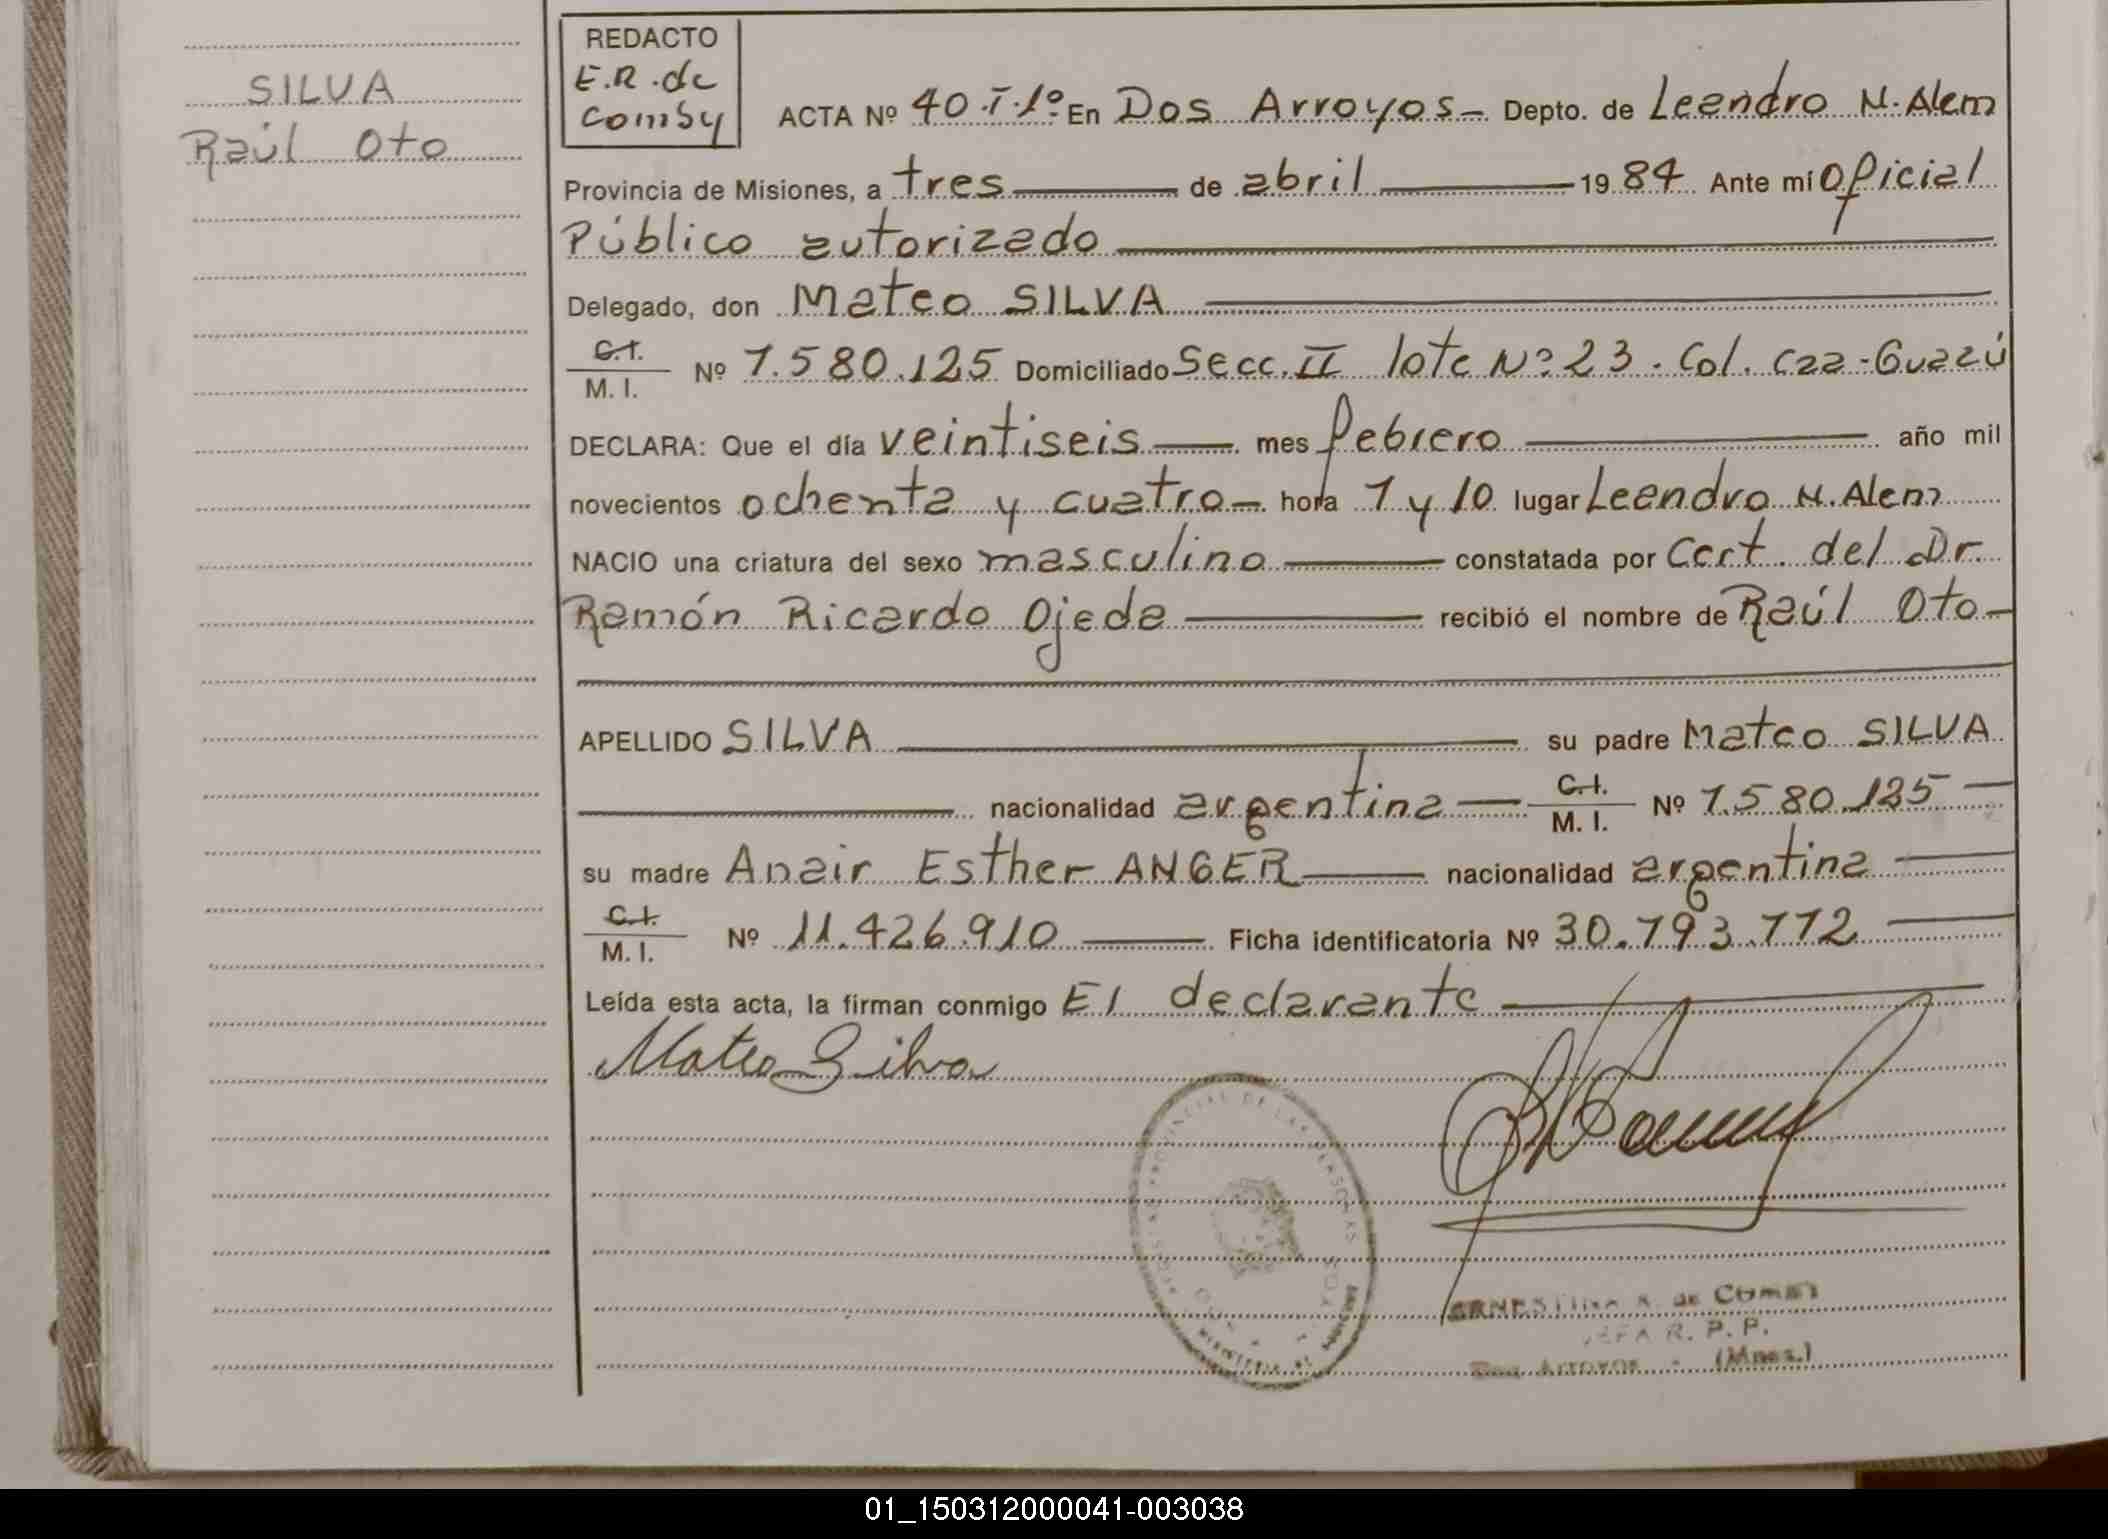 SILVA
Raúl Oto
REDACTO
E.R.de
Comby
ACTA Nº 40.T.1º En Dos Arroyos- Depto. de Leandro N. Alem
Provincia de Misiones, a tres de abril 1984 Ante mí Oficial
Público autorizado
Delegado, don Mateo SILVA
C.I.
M. I. Nº 7.580.125 Domiciliado Secc. II lote Nº 23. Col. Caa-Guazú
DECLARA: Que el día veintiseis mes febrero año mil
novecientos ochenta y cuatro- hora 7 y 10 lugar Leandro N. Alem
NACIO una criatura del sexo masculino constatada por Cert. del Dr.
Ramón Ricardo Ojeda recibió el nombre de Raúl Oto-
APELLIDO SILVA su padre Mateo SILVA
nacionalidad argentina C.I.
M. I. Nº 7.580.125
su madre Anair Esther ANGER nacionalidad argentina
C.I.
M. I. Nº 11.426.910 Ficha identificatoria Nº 30.793.772
Leída esta acta, la firman conmigo El declarante
Mateo Silva
ERNESTINA R. de COMBY
JEFA R. P. P.
Dos Arroyos - (Mnes.)
01_150312000041-003038